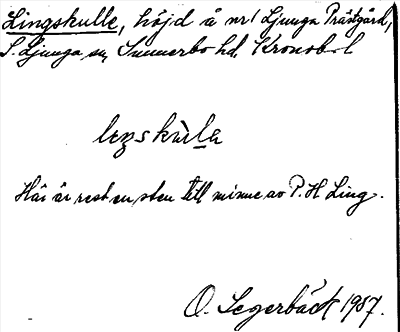 Lingskulle, höjd å nr 1 Ljunga Prästgård,
S. Ljunga sn, Sunnerbo hd. Kronob. l
liŋskùla
Här är rest en sten till minne av P. H. Ling.
O. Segerbäck 1937.